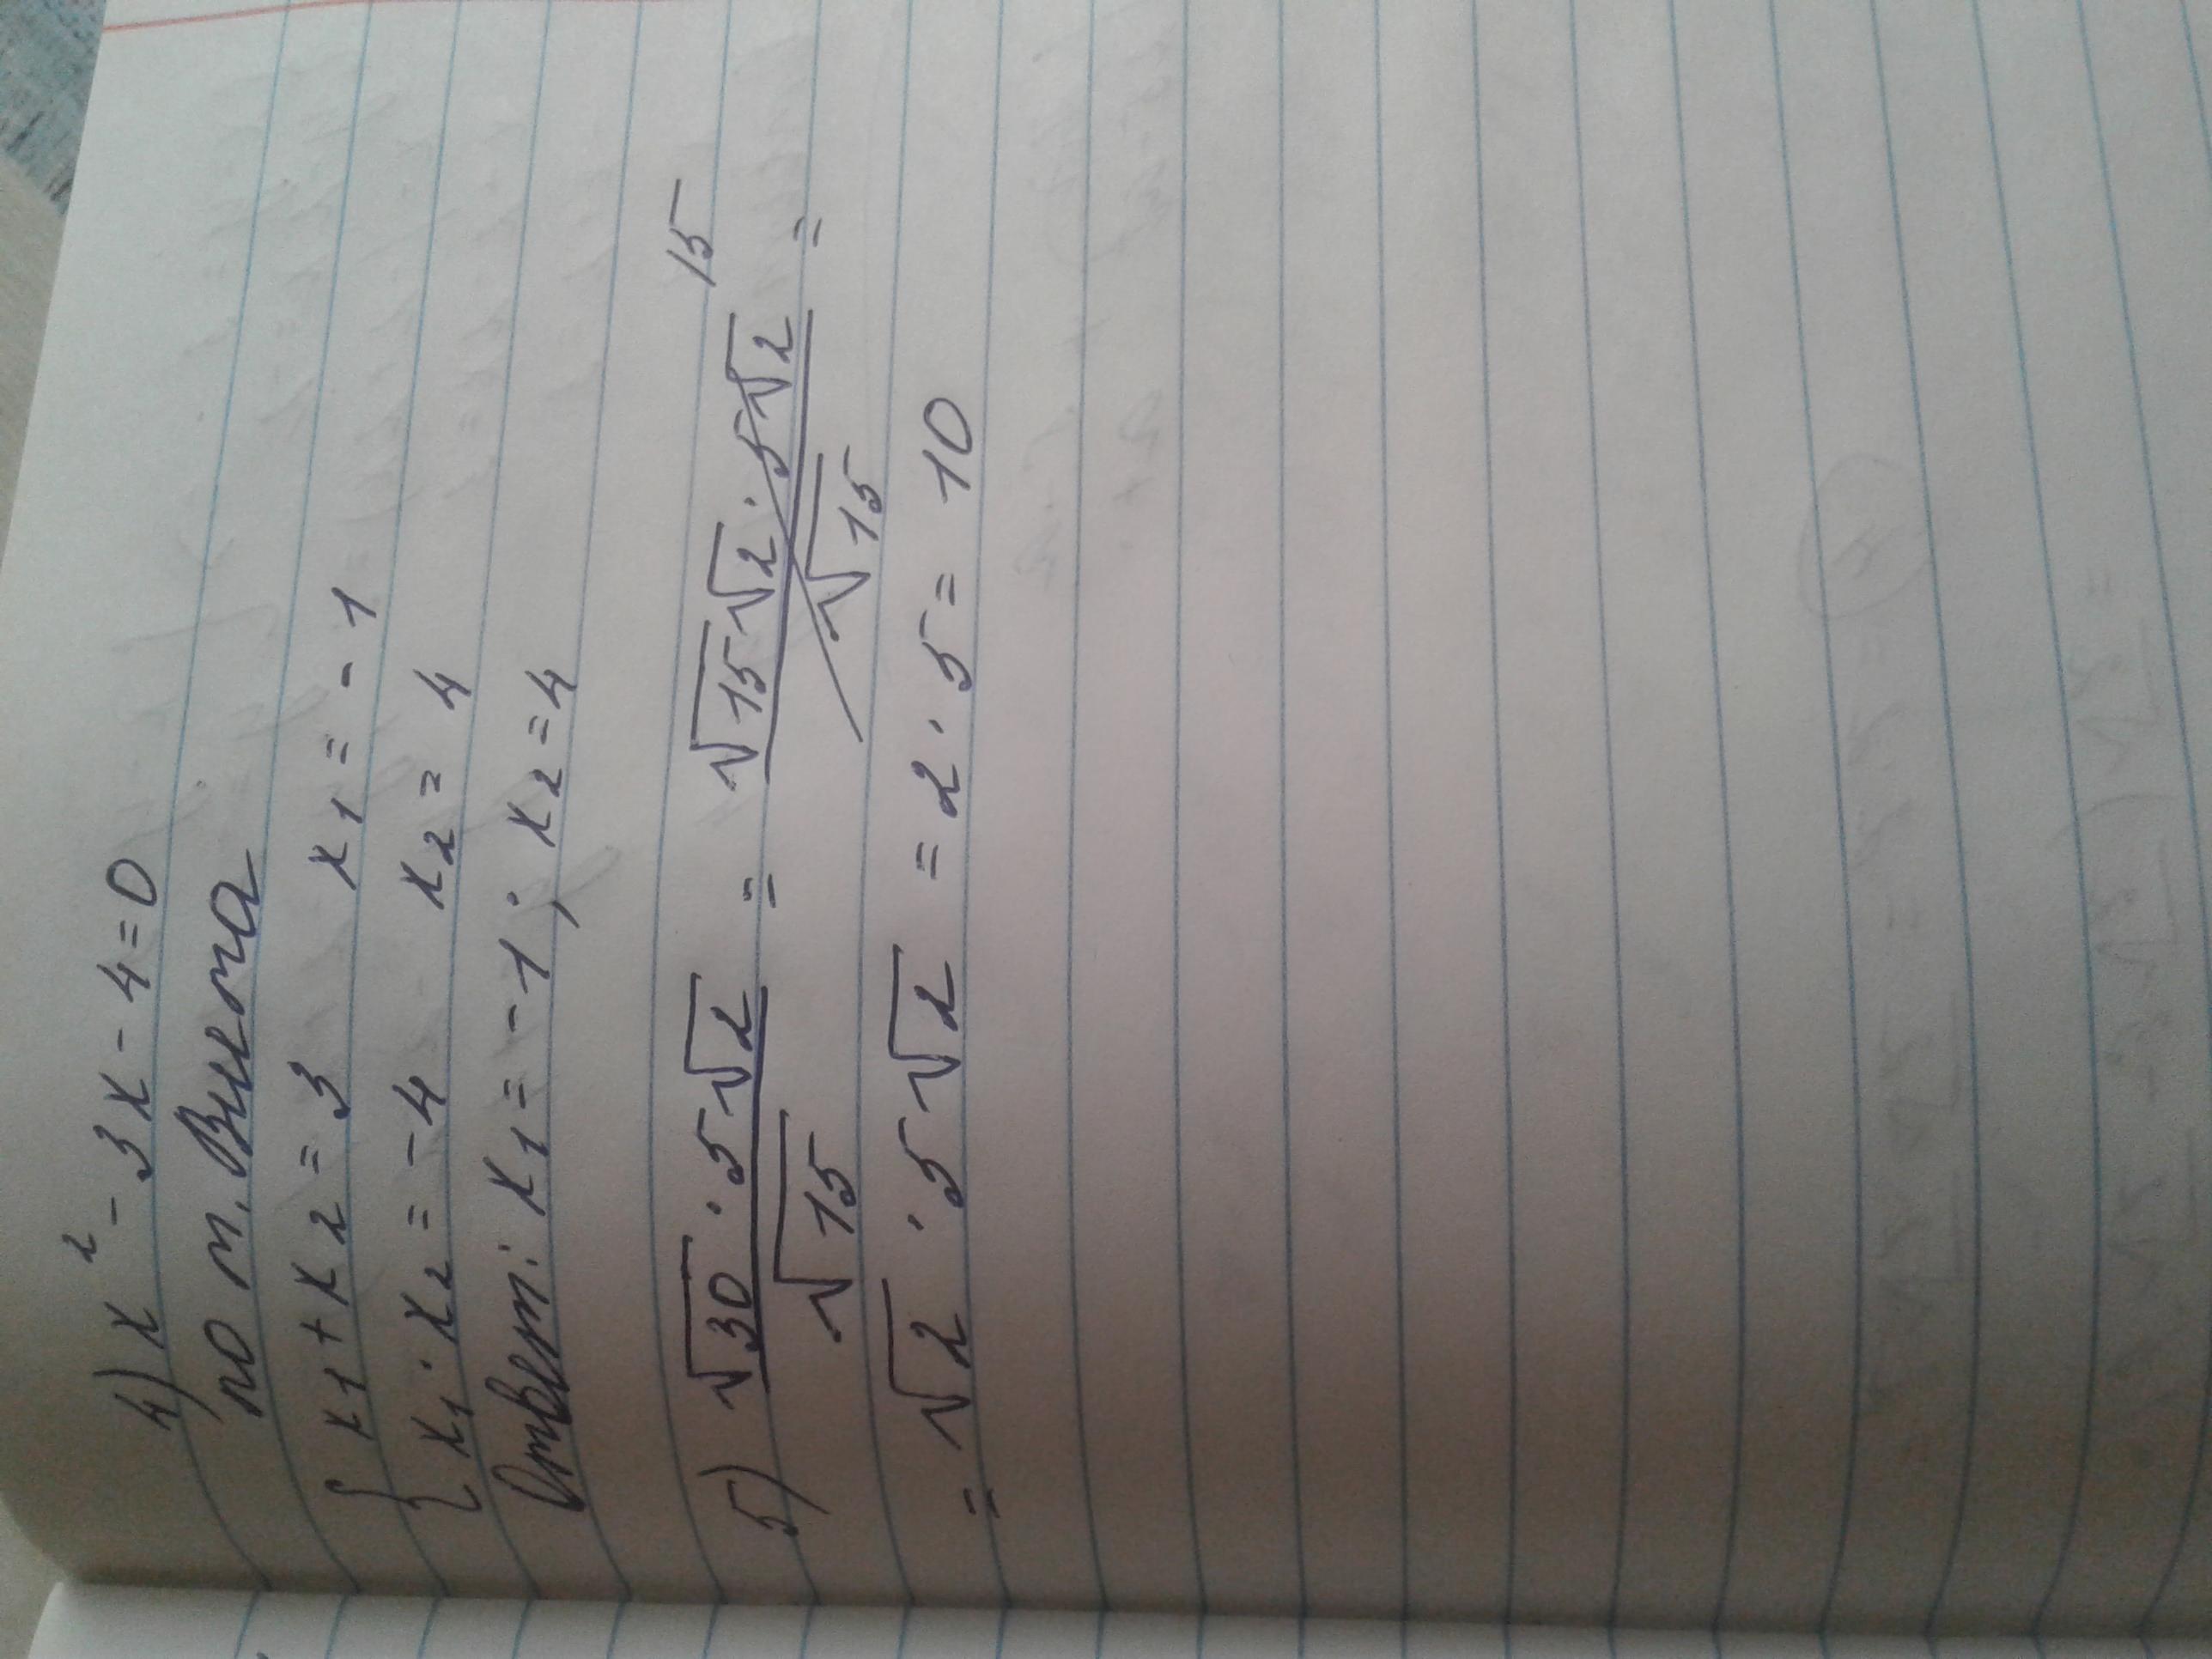 4) x² - 3x - 4 = 0
по т. Виета
{ x₁ + x₂ = 3 x₁ = - 1
x₁ · x₂ = - 4 x₂ = 4
Ответ: x₁ = - 1 ; x₂ = 4
5) √30 · 5√2 / √15 = √15 √2 · 5√2 / √15 = 15
= √2 · 5√2 = 2 · 5 = 10